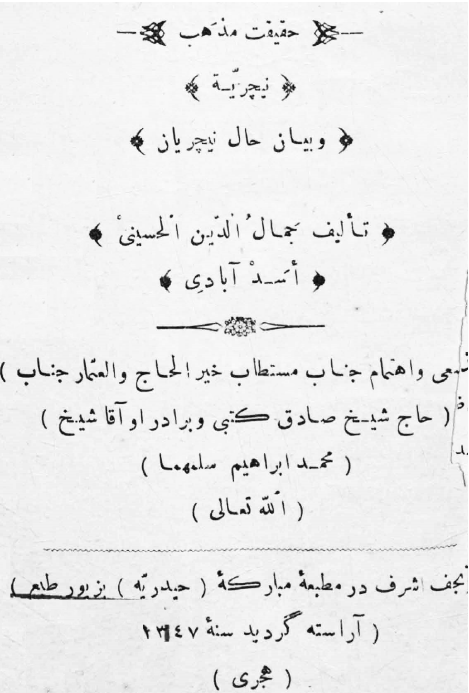 حقیقت مذهب
نیچریّة
وبیان حال نیچریان
تألیف جمال الدّین الحسینی
أسَدْ آبادی
سعی واهتمام جناب مستطاب خیر الحاج والعمّار جناب )
( حاج شیخ صادق کتبی وبرادر او آقا شیخ )
( محمد ابراهیم سلمهما )
( اللّه تعالی )
نجف اشرف در مطبعهٔ مبارکهٔ ( حیدریّه ) بزیور طبع )
( آراسته گردید سنهٔ ۱۳۴۷
( هجری )